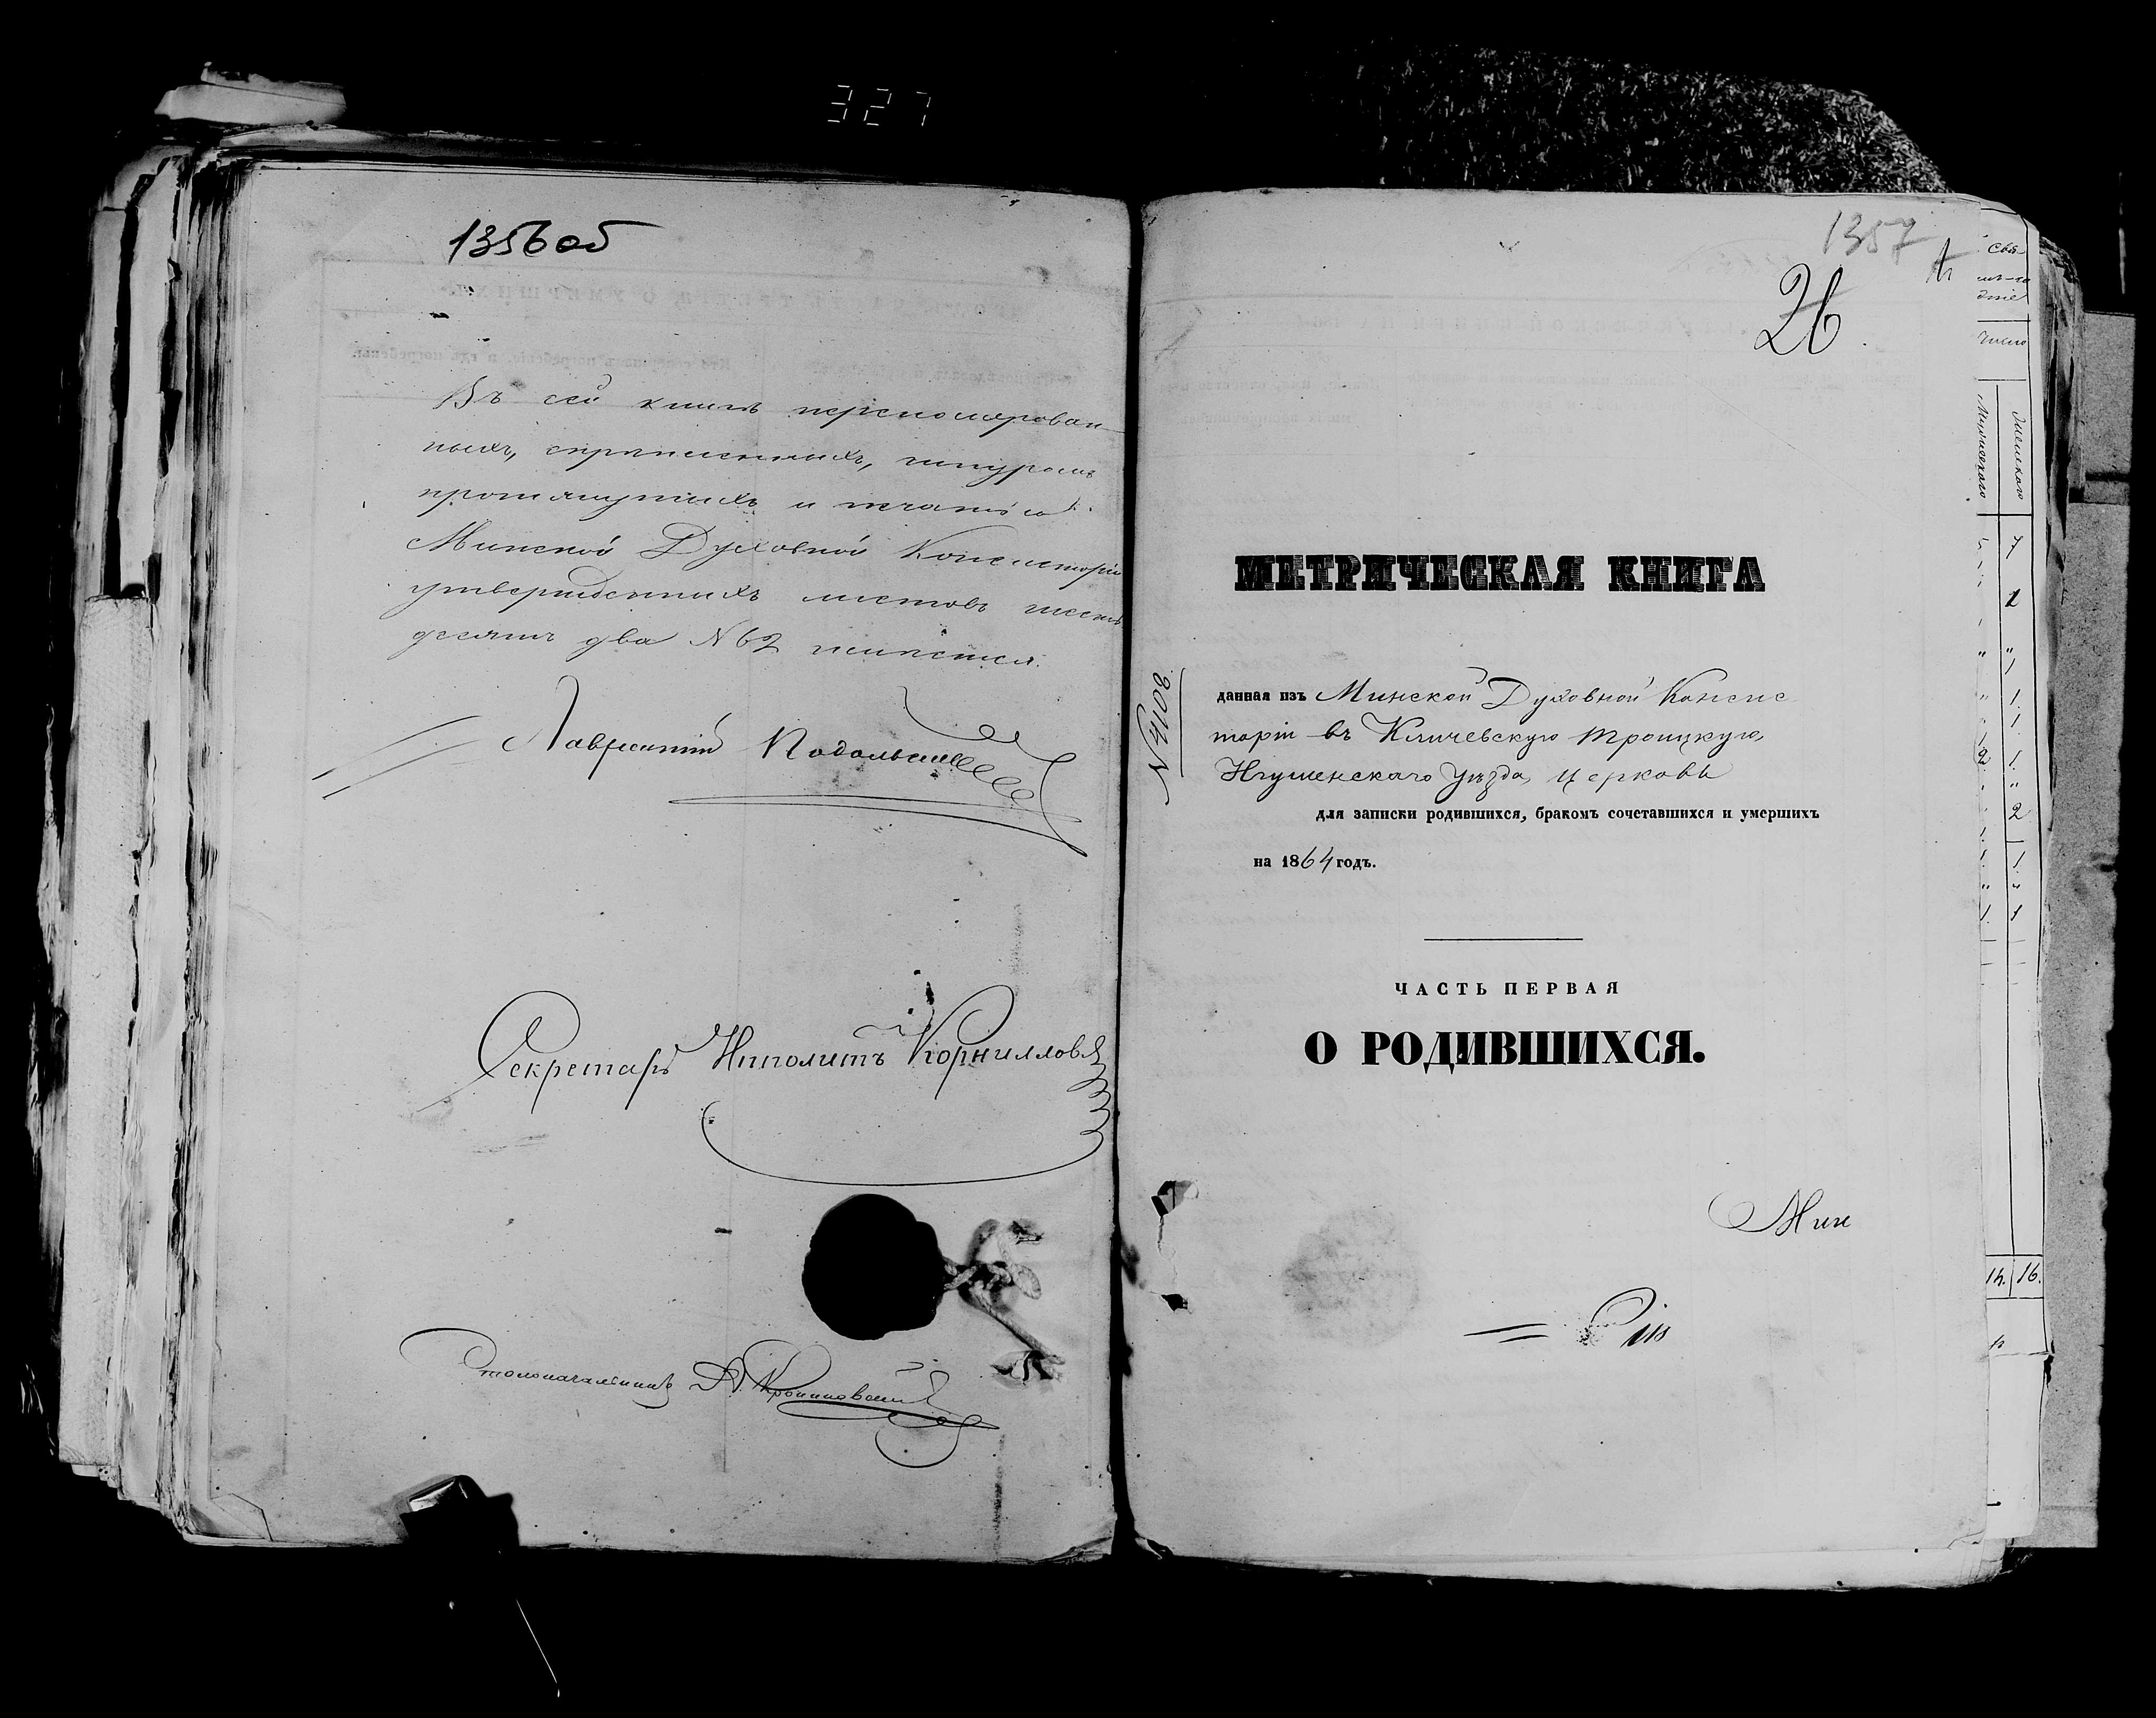 327
1356 об
Въ сей книгѣ перенумерован-
ныхъ, скрѣпленныхъ, шнуромъ
протянутыхъ и печатію
Минской Духовной Консисторіи
утвержденныхъ листовъ шесть
десятъ два №62 имѣется.
Лаврентій Подольскій
Секретарь Ипполитъ Корниловъ
Столоначальникъ
1357
26
МЕТРИЧЕСКАЯ КНИГА
№4108.
данная изъ Минской Духовной Консис
торіи въ Кличевскую Троицкую,
Игуменскаго Уѣзда, церковь
для записки родившихся, бракомъ сочетавшихся и умершихъ
на 1864 годъ.
ЧАСТЬ ПЕРВАЯ
О РОДИВШИХСЯ.
Мин
число
Мужескаго
Женскаго
7
1
1.
1.
2. 1.
2
1.
1. 1
14. 16.